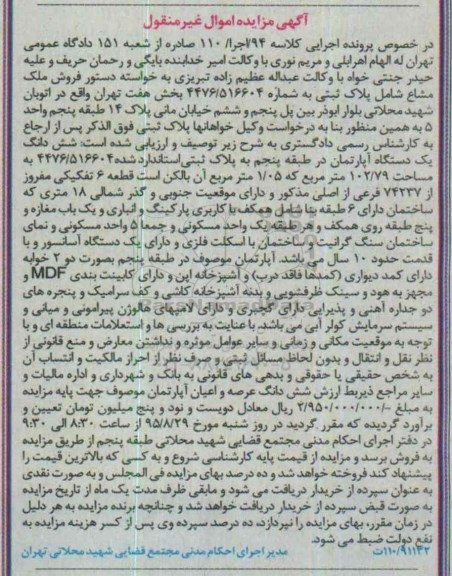 آگهی مزایده اموال غیر منقول
در خصوص پرونده اجرایی کلاسه ۹۴/اجرا/ ۱۱۰ صادره از شعبه ۱۵۱ دادگاه عمومی
تهران له الهام اهرابلی و مریم نوری با وکالت امیر خدابنده بایگی و رحمان حریف و علیه
حیدر جنتی خواه با وکالت عبداله عظیم زاده تبریزی به خواسته دستور فروش ملک
مشاع شامل پلاک ثبتی به شماره ۴۴۷۶/۵۱۶۶۰۴ بخش هفت تهران واقع در اتوبان
شهید محلاتی بلوار ابوذر بین پل پنجم و ششم خیابان مانی پلاک ۱۴ طبقه پنجم واحد
۵ به همین منظور بنا به درخواست وکیل خواهانها پلاک ثبتی فوق الذکر پس از ارجاع
به کارشناس رسمی دادگستری به شرح زیر توصیف و ارزیابی شده است: شش دانگ
یک دستگاه آپارتمان در طبقه پنجم به پلاک ثبتی استاندارد شده ۴۴۷۶/۵۱۶۶۰۴ به
مساحت ۱۰۲/۷۹ متر مربع که ۱/۰۵ متر مربع آن بالکن است قطعه ۶ تفکیکی مفروز
از ۷۴۲۳۷ فرعی از اصلی مذکور و دارای موقعیت جنوبی و گذر شمالی ۱۸ متری که
ساختمان دارای ۶ طبقه بنا شامل همکف با کاربری پارکینگ و انباری و یک باب مغازه و
پنج طبقه روی همکف و هر طبقه یک واحد مسکونی و جمعا ۵ واحد مسکونی و نمای
ساختمان سنگ گرانیت و ساختمان با اسکلت فلزی و دارای یک دستگاه آسانسور و با
قدمت حدود ۱۰ سال می باشد. آپارتمان موصوف در طبقه پنجم بصورت دو ۲ خوابه
دارای کمد دیواری (کمدها فاقد درب) و آشپزخانه اپن و دارای کابینت بندی MDF و
مجهز به هود و سینک ظرفشویی و بدنه آشپزخانه کاشی و کف سرامیک و پنجره های
دو جداره آهنی و پذیرایی دارای گچبری و دارای لامپهای هالوژن پیرامونی و میانی و
سیستم سرمایش کولر آبی می باشد. با عنایت به بررسی ها و استعلامات منطقه ای و با
توجه به موقعیت مکانی و زمانی و سایر عوامل موثره و نداشتن معارض و منع قانونی از
نظر نقل و انتقال و بدون لحاظ مسائل ثبتی و صرف نظر از احراز مالکیت و انتساب آن
به شخص حقیقی یا حقوقی و بدهی های قانونی به بانک و شهرداری و اداره مالیات و
سایر مراجع ذیربط ارزش شش دانگ عرصه و اعیان آپارتمان موصوف جهت پایه مزایده
به مبلغ ۲/۹۵۰/۰۰۰/۰۰۰/- ریال معادل دویست و نود و پنج میلیون تومان تعیین و
برآورد گردیده که مقرر گردید در روز شنبه مورخ ۹۵/۸/۲۹ از ساعت ۸:۳۰ الی ۹:۳۰
در دفتر اجرای احکام مدنی مجتمع قضایی شهید محلاتی طبقه پنجم از طریق مزایده
به فروش برسد و مزایده از قیمت پایه کارشناسی شروع و به کسی که بالاترین قیمت را
پیشنهاد کند فروخته خواهد شد و ده درصد بهای مزایده فی المجلس و به صورت نقدی
به عنوان سپرده از خریدار دریافت می شود و مابقی ظرف مدت یک ماه از تاریخ مزایده
به صورت قبض سپرده از خریدار دریافت خواهد شد و چنانچه برنده مزایده به هر دلیل
در زمان مقرر، بهای مزایده را نپردازد، ده درصد سپرده وی پس از کسر هزینه مزایده به
نفع دولت ضبط می شود.
۱۱۰/۹۱۱۳۲ت مدیر اجرای احکام مدنی مجتمع قضایی شهید محلاتی تهران